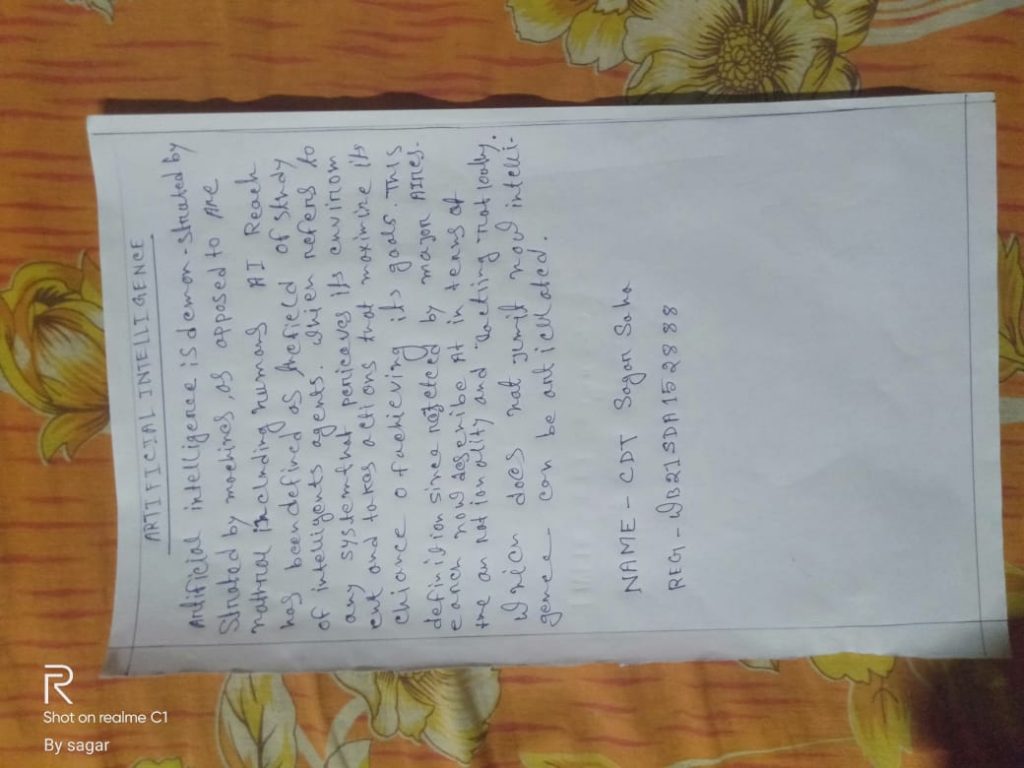 ARTIFICIAL INTELLIGENCE
Artificial intelligence is demon-strated by
strated by machines, as opposed to are
natural including humans AI Reach
has beendefined as of study
of intelligents agents. which refers to
any systemthat periceaves its environm
ent and takes actions that maximize its
chiance of achieving its goals. This
definition since by major AIRes.
earch now describe At in terms of
the an not ionality and nationally.
which does not how intelli-
gence can be
NAME - CDT Sagar Saha
REG - WB21SDA152888
R
Shot on realme C1
By sagar